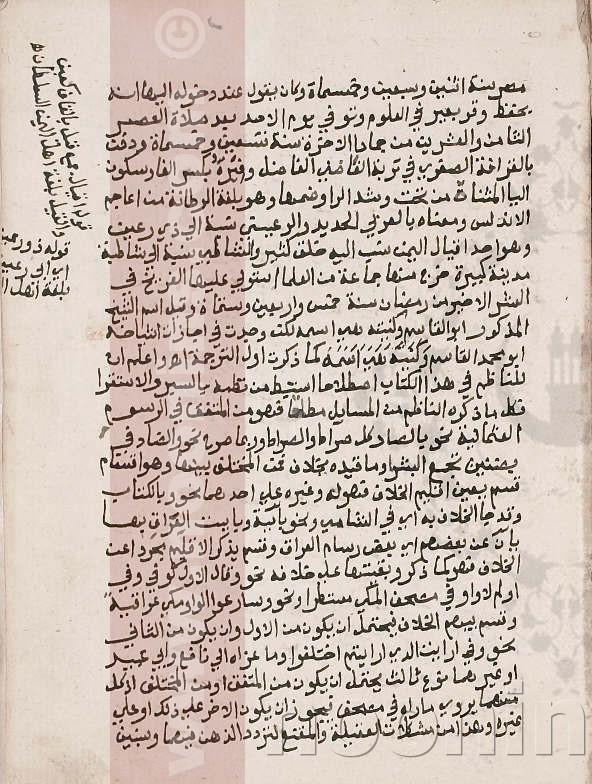 مصر سنة اثنين وسبعين وخمسماة وكان يقول عند دخوله اليها انه
يحفظ وقر بعير في العلوم وتوفي يوم الاحد بعد صلاة العصر
الثامن والعشرين من جمادا الاخرة سنة تسعين وخمسماة ودفن
بالقرافة الصغرى في تربة القاضي الفاضل وفيرة بكسر الفا وسكون
اليا المثناة من تحت وشد الرا وضمها وهو بلغة الوطانة من اعاجم
الاندلس ومعناه بالعربي الحديد والرعيني نسبة الى ذي رعين
وهو احد اقيال اليمن نسب اليه خلق كثير والشاطبي نسبة الى شاطبة
مدينة كبيرة خرج منها جماعة من العلما استولى عليها الفرنج في
العشر الاخير من رمضان سنة خمس واربعين وستماة وقيل اسم الشيخ
المذكور ابو القاسم وكنيته اسمه لكن وجدت في اجازات اشياخه
ابو محمد القاسم كما ذكرت اول الترجمة اه واعلم ان
للناظم في هذا الكتاب اصطلاحا استنبط من نظمه بالسير والاستقرا
فكل ما ذكره الناظم من المسايل مطلقا فهو من المتفق في الرسوم
العثمانية نحو بالصاد كل صراط والصراط وربما صرح به نحو والصاد في
بصنتين تجمع البشر وما قيده بخلاف فمن المختلف بينها وهو اقسام
قسم يعين اقليم الخلاف فهو له وغيره على احد هما نحو وبالكتاب
وقد جا الخلاف به اي في الشامي ونحو بآية وبآيت العراق بها
بان عن بعضهم اي بعض رسام العراق وقسم يذكر الاقليم مجردا عن
الخلاف فهو كما ذكر وبقيتها على خلافه نحو وقال الاول كوفي وفي
اولم لا واو في مصحف المكي مستطرا ونحو وسارعوا الواو مكي عراقية
وقسم يبهم الخلاف فيحتمل ان يكون من الاول وان يكون من الثاني
نحو وفي ارايت الذي ارايتم اختلفوا وما عزاه الى نافع وابي عبيد
او غيرهما نوع ثالث يحتمل ان يكون من المتفق او من المختلف اذ كل
منهما يروي ما راه في مصحف فيجوز ان يكون الاخر على ذلك او على
غيره وهذا من مشكلات العقيلة والمقنع لتردد الذهن فيهما وسنبين
قوله اقيال جمع قيل بالفا كعين
والقيل بلغة اهل اليمن السلطان اه
قوله ذو رعين
اي ابى رعين
بلغة اهل ا
noormin